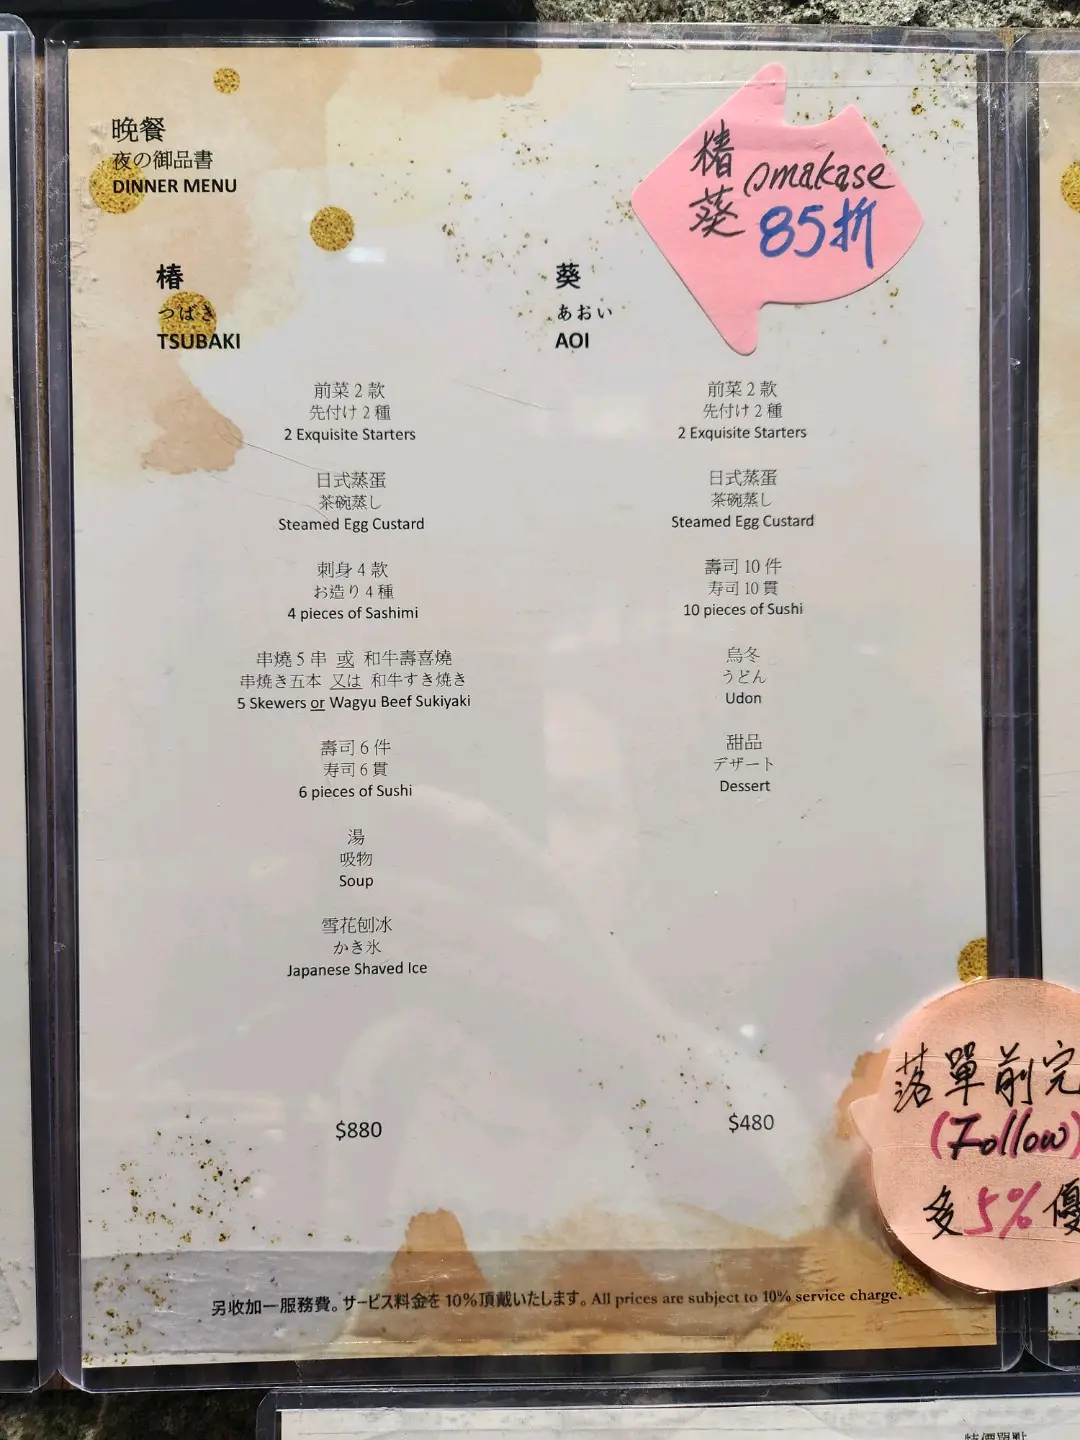 晚餐
夜の御品書
DINNER MENU
椿
葵
omakase
85折
椿
つばき
TSUBAKI
前菜 2 款
先付け 2 種
2 Exquisite Starters
日式蒸蛋
茶碗蒸し
Steamed Egg Custard
刺身 4 款
お造り 4 種
4 pieces of Sashimi
串燒 5 串 或 和牛壽喜燒
串焼き五本 又は 和牛すき焼き
5 Skewers or Wagyu Beef Sukiyaki
壽司 6 件
寿司 6 貫
6 pieces of Sushi
湯
吸物
Soup
雪花刨冰
かき氷
Japanese Shaved Ice
$880
葵
あおい
AOI
前菜 2 款
先付け 2 種
2 Exquisite Starters
日式蒸蛋
茶碗蒸し
Steamed Egg Custard
壽司 10 件
寿司 10 貫
10 pieces of Sushi
烏冬
うどん
Udon
甜品
デザート
Dessert
$480
落單前完
(Follow)
多5%優
另收加一服務費。サービス料金を 10%頂戴いたします。All prices are subject to 10% service charge.